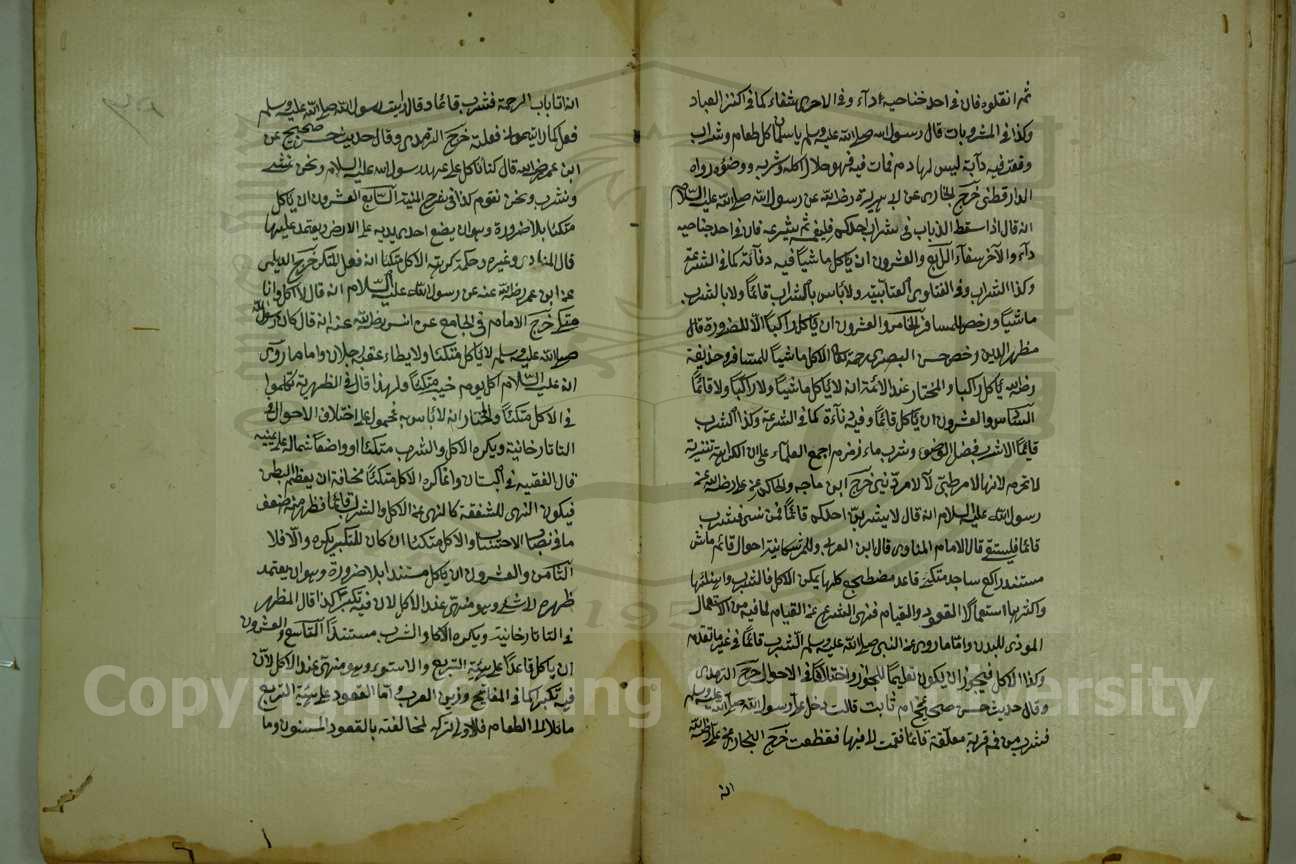 ثم انقلوه فان في احد جناحيه داء وفي الاخرى شفاء كما في كنز العباد
وكذا في المشروبات قال رسول الله صلى الله عليه وسلم يا سلمان كل طعام وشراب
وقعت فيه دابة ليس لها دم فمات فيه فهو حلال اكله وشربه ووضوؤه رواه
الدارقطني خرج البخارى عن ابى هريرة رضى الله عن رسول الله صلى الله عليه السلام
انه قال اذا سقط الذباب في شراب احدكم فليغمسه ثم لينزعه فان في احد جناحيه
داء والآخر شفاء الرابع والعشرون ان يأكل ماشيا فيه دنائة كما في الشرعة
وكذا الشراب وفي الفتاوى العتابية ولا باس بالشراب قائما ولا بالشرب
ماشيا ورخص للمسافر الخامس والعشرون ان يأكل راكبا الا للضرورة قال
مظهر الدين وخص حسن البصرى رحمه الله الاكل ماشيا للمسافر وحذيفة
رضى الله يأكل راكبا والمختار عند الائمة انه لا يأكل ماشيا ولا راكبا ولا قائما
السادس والعشرون ان يأكل قائما وفيه دنآءة كما في الشرعة وكذا الشرب
قائما الا شرب فضل الوضوء وشرب ماء زمزم اجمع العلماء على ان الكراهة تنزيهية
لا تحرم لانها لامر طبى لا لامر دينى خرج ابن ماجه والحاكم عن رضى الله عنه
رسول الله عليه السلام انه قال لا يشربن احدكم قائما فمن نسى فشرب
قائما فليستقئ قال الامام المناوى قال ابن العربى وللمرء ثمانية احوال قائم ماش
مستند راكع ساجد متكئ قاعد مضطجع كلها يمكن الاكل والشرب واهنئها
واكثرها استعمالا القعود والقيام فنهى الشرع عن القيام لما فيه من الاستعجال
الموذى للبدن واما ما روى عن النبى صلى الله عليه وسلم الشرب قائما في غير ما تقدم
وكذا الاكل فيجوز ان يكون تعليما للجواز واختلافا في الاحوال خرج الترمذى
وقال حديث حسن صحيح ام ثابت قالت دخل على رسول الله صلى الله عليه وسلم
فشرب من فم قربة معلقة قائما فقمت الى فيها فقطعت خرج البخارى عن على رضى الله
انه
انه اتا باب الرحبة فشرب قائما وقال رأيت رسول الله صلى الله عليه وسلم
فعل كما رأيتمونى فعلته خرج الترمذى وقال حديث حسن صحيح عن
ابن عمر رضى الله قال كنا نأكل على عهد رسول الله عليه السلام ونحن نمشى
ونشرب ونحن نقوم كذا في السابع العشرون ان يأكل
متكئا بلا ضرورة وهو ان يضع احدى يديه على الارض يعتمد عليها
قال المناوى وغيره وحكمة كراهة الاكل متكئا انه فعل المتكبر خرج الديلمى
عن ابن عمر رضى الله عنه عن رسول الله عليه السلام انه قال لا آكل وانا
متكئ خرج الامام في الجامع عن انس رضى الله عنه انه قال كان رسول الله
صلى الله عليه وسلم لا يأكل متكئا ولا يطاء عقبه رجلان واما ما روى
انه عليه السلام اكل يوم خيبر متكئا ولهذا قال في الظهيرية تكلموا
في الاكل متكئا والمختار انه لا باس به فمحمول على اختلاف الاحوال وفى
التاتارخانية ويكره الاكل والشرب متكئا او واضعا شماله على يمينه
قال الفقيه في البستان وانما كره الاكل متكئا مخافة ان يعظم البطن
فيكون النهى للشفقة كالنهى عن الاكل والشرب قائما فظهر منه ضعف
ما في نصاب الاحتساب والاكل متكئا ان كان للتكبر يكره والا فلا
الثامن والعشرون ان يأكل مستندا بلا ضرورة وهو ان يعتمد
ظهره الى شئ وهو منهى عند الاكل لان فيه تكبر كذا قال المظهر
في التاتارخانية ويكره الاكل والشرب مستندا التاسع والعشرون
ان يأكل قاعدا على هيئة التربيع والاستواء وهو منهى عند الاكل لان
فيه تكبر كما في المفاتيح وزين العرب واما القعود على هيئة التربيع
مائلا الى الطعام فالاولى تركه لمخالفته بالقعود المسنون وما
Copyright © King Saud University
1957